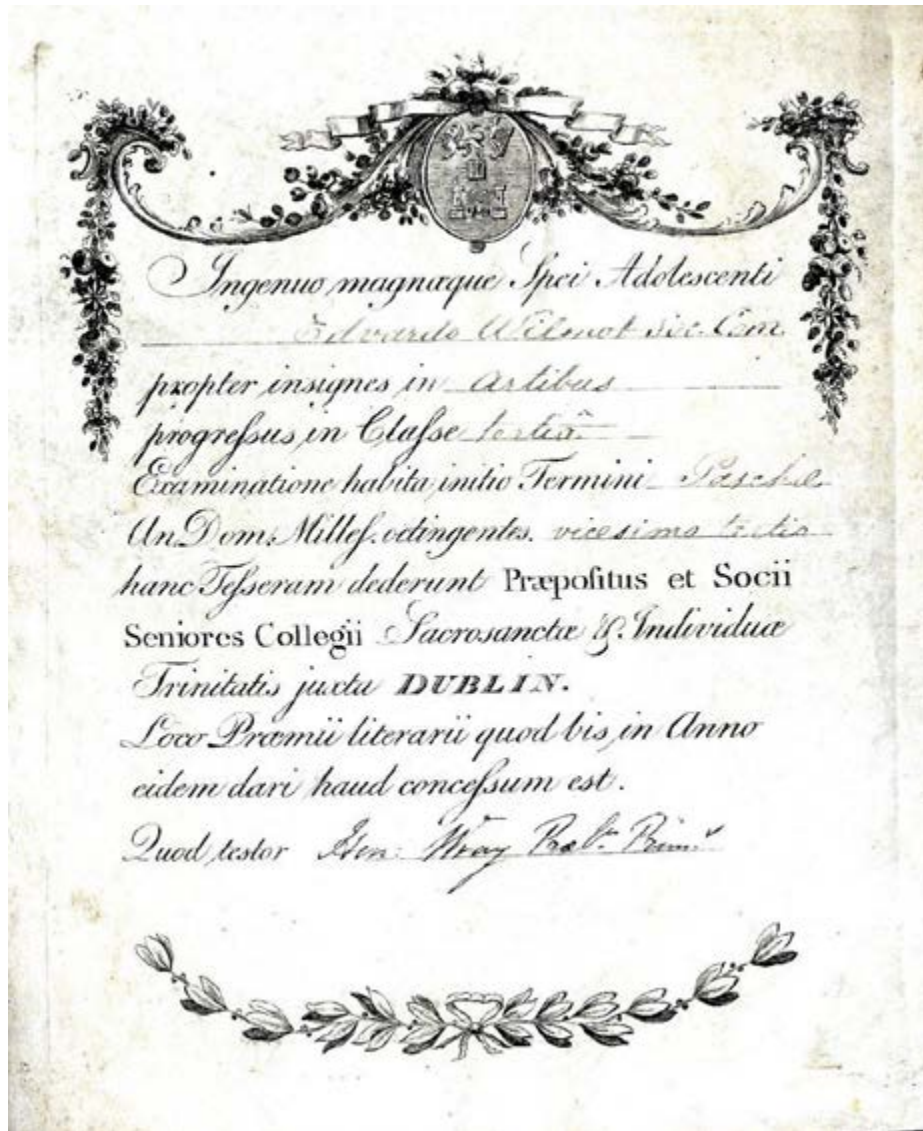 Ingenuo magnæque Spei Adolescenti
Edvardo Wilmot Soc. Com.
propter insignes in artibus
progreſsus in Claſse tertiâ
Examinatione habita initio Termini Paschæ
An. Dom. Milleſ. octingentes. vicesimo tertio
hanc Teſseram dederunt Præpoſitus et Socii
Seniores Collegii Sacrosanctæ & Individuæ
Trinitatis juxta DUBLIN.
Loco Præmii literarii quod bis in Anno
eidem dari haud conceſsum est.
Quod testor Hen: Wray Præ Prim